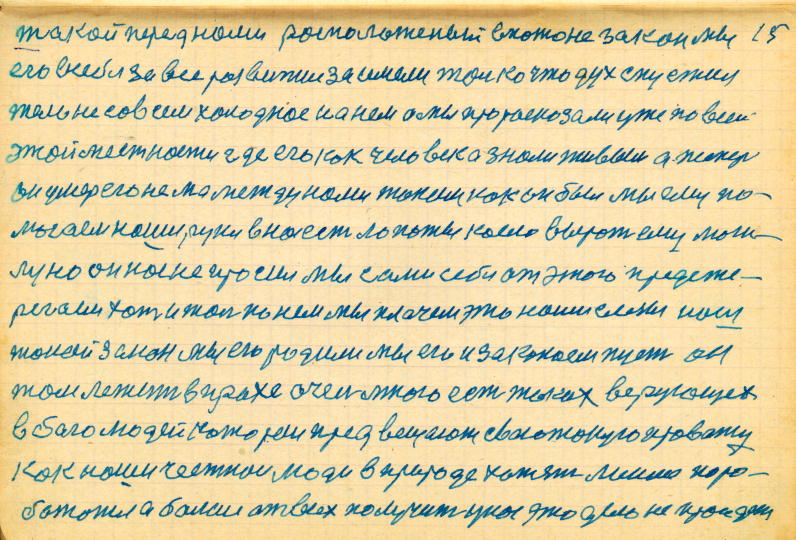 такой перед нами росположеный в когоне закон мы 15
его в себя за все развитии заимели толко что дух служил
тель не совсем холодное на нем а мы про росказали уже по всей
этой местности где его как человека знали живым а тепер
он умер его не ма между нами таким как он был мы ему по-
могаем наши руки в нас ест лопоты кайло вырот ему моги-
лу но он нас не просил мы сами себя от этого предсте-
регаем хоть и тоя по нем мы плачем это наши слезы наш
такой закон мы его родили мы его и закопаем пуст он
там лежить в прахе очен много ест таких верующех
в бага людей которыи предвещают свою такую провату
как наши честнои люди в природе хотят менше поро-
ботат а болше от всех получит у нас это дело не пройдет